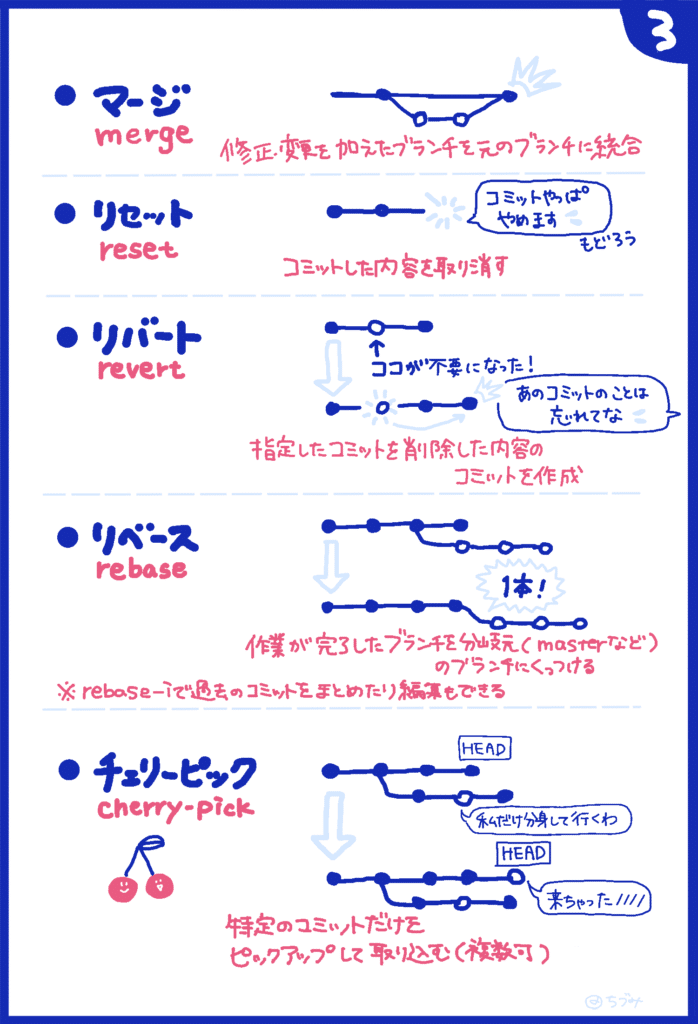 3
● マージ
merge
修正・変更を加えたブランチを元のブランチに統合
● リセット
reset
コミットやっぱ
やめます
もどろう
コミットした内容を取り消す
● リバート
revert
ココが不要になった!
あのコミットのことは
忘れてな
指定したコミットを削除した内容の
コミットを作成
● リベース
rebase
1本!
作業が完了したブランチを分岐元(masterなど)
のブランチにくっつける
※rebase-iで過去のコミットをまとめたり編集もできる
● チェリーピック
cherry-pick
HEAD
私だけ分身して行くわ
HEAD
来ちゃった////
特定のコミットだけを
ピックアップして取り込む(複数可)
@ちづみ